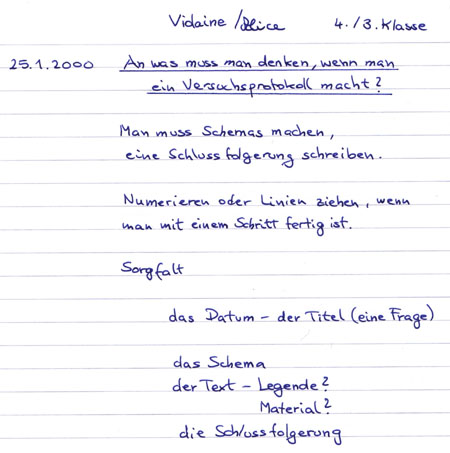 Vidaine/Alice 4./3. Klasse
25.1.2000 An was muss man denken, wenn man
ein Versuchsprotokoll macht?
Man muss Schemas machen,
eine Schlussfolgerung schreiben.
Numerieren oder Linien ziehen, wenn
man mit einem Schritt fertig ist.
Sorgfalt
das Datum - der Titel (eine Frage)
das Schema
der Text - Legende?
Material?
die Schlussfolgerung